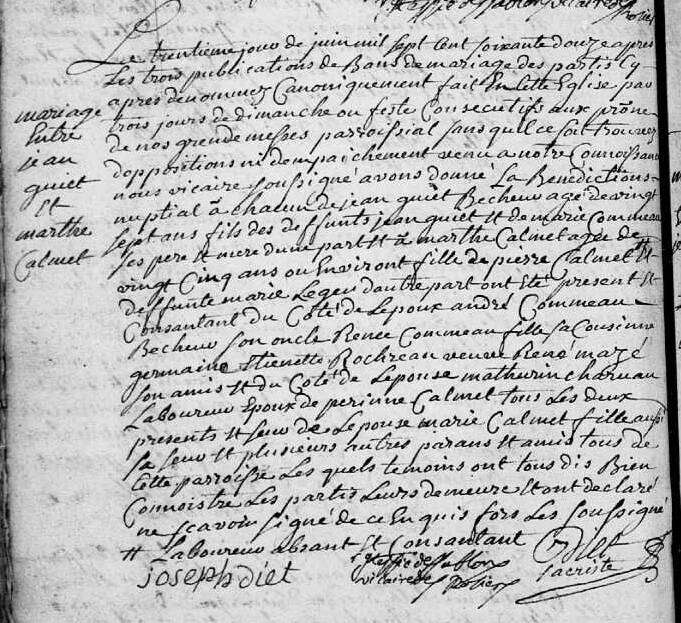 Le trentieme jour de juin mil sept cent soixante douze apres
Les trois publications de Bans de mariage des partis Cy
apres denommez Canoniquement fait En Cette Eglise par
trois jours de dimanche ou feste Consecutifs aux prône
de nos grende messes parroissial sans quil ce soit trouvez
doppositions ni dempaichement venu a notre Connoissance
nous vicaire soussigné avons donné La Benediction
nuptial à chalun de jean quiet Becheur agé de vingt
sept ans fils des deffunts jean quiet Et de marie Commeau
ses pere Et mere dune part Et à marthe Calmet agée de
vingt Cinq ans ou Environt fille de pierre Calmet Et
deffunte marie Leger dautre part ont Eté present Et
Consantant du Coté de Lepoux andré Commeau
Becheur son oncle Renee Commeau fille sa Cousinne
germaine Etienette Rochreau veuve René mazé
son amis Et du Coté de Lepouse mathurin charuau
Laboureur Epoux de perinne Calmet tous Les deux
presents Et seur de Lepouse marie Calmet fille aussi
sa seur Et plusieurs autres parans Et amis tous de
Cette parroisse Les quels temoins ont tous dis Bien
Connoistre Les partis Leurs demeure Et ont declaré
ne scavoir signé de ce Enquis fors Les soussigné
Et Laboureur absant Et Consantant
mariage
Entre
jean
quiet
Et
marthe
Calmet
joseph diet
vicaire de
Dillé
sacriste